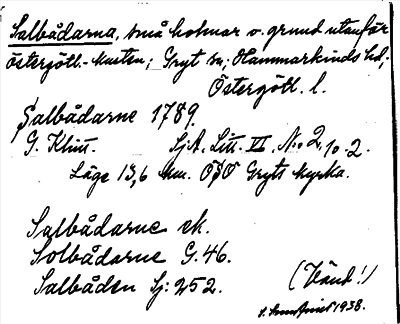 Salbådarna, små holmar o. grund utanför
Östergötl.-kusten; Gryt sn; Hammarkinds hd;
Östergötl. l.
Salbådarne 1789.
G. Klint. Sj.A. Litt. VI. No 2, 10-2.
Läge 13,6 km. OSO Gryts kyrka.
Salbådarne ek.
Solbådarne G. 46.
Salbåden Sj: 252.
(Vänd!)
1938.